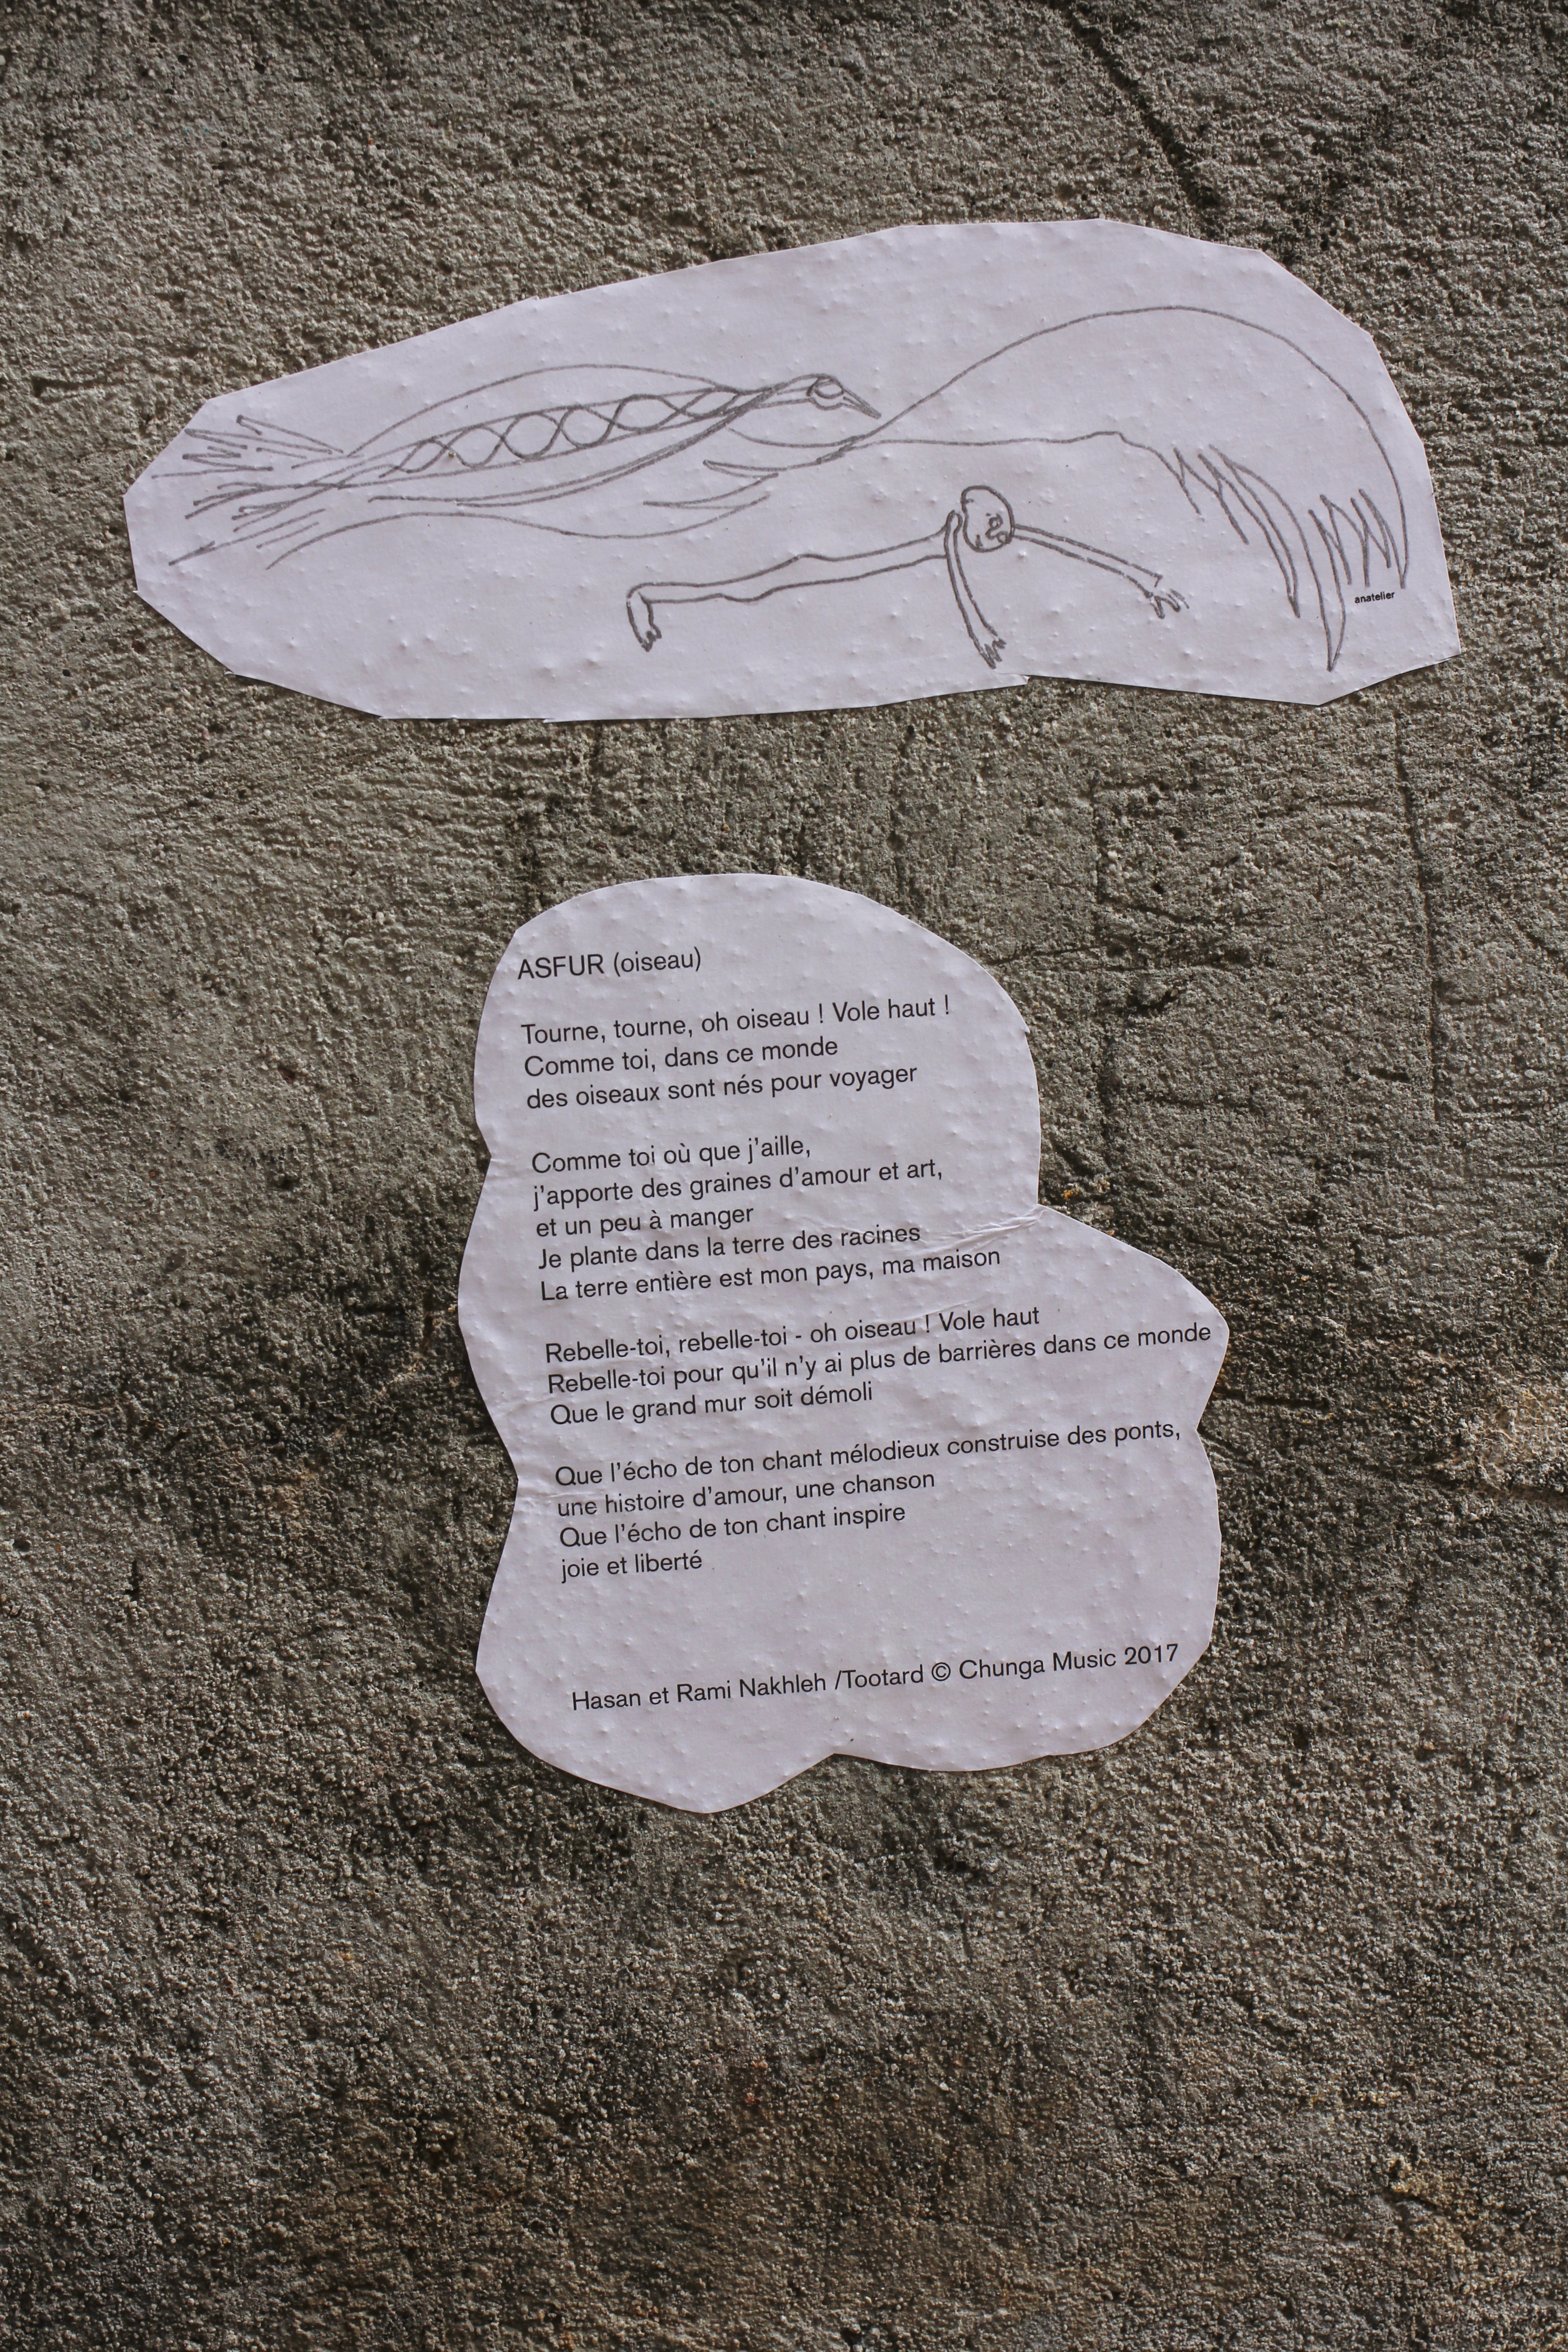 anatelier
ASFUR (oiseau)
Tourne, tourne, oh oiseau ! Vole haut !
Comme toi, dans ce monde
des oiseaux sont nés pour voyager
Comme toi où que j'aille,
j'apporte des graines d'amour et art,
et un peu à manger
Je plante dans la terre des racines
La terre entière est mon pays, ma maison
Rebelle-toi, rebelle-toi - oh oiseau ! Vole haut
Rebelle-toi pour qu'il n'y ai plus de barrières dans ce monde
Que le grand mur soit démoli
Que l'écho de ton chant mélodieux construise des ponts,
une histoire d'amour, une chanson
Que l'écho de ton chant inspire
joie et liberté
Hasan et Rami Nakhleh /Tootard © Chunga Music 2017